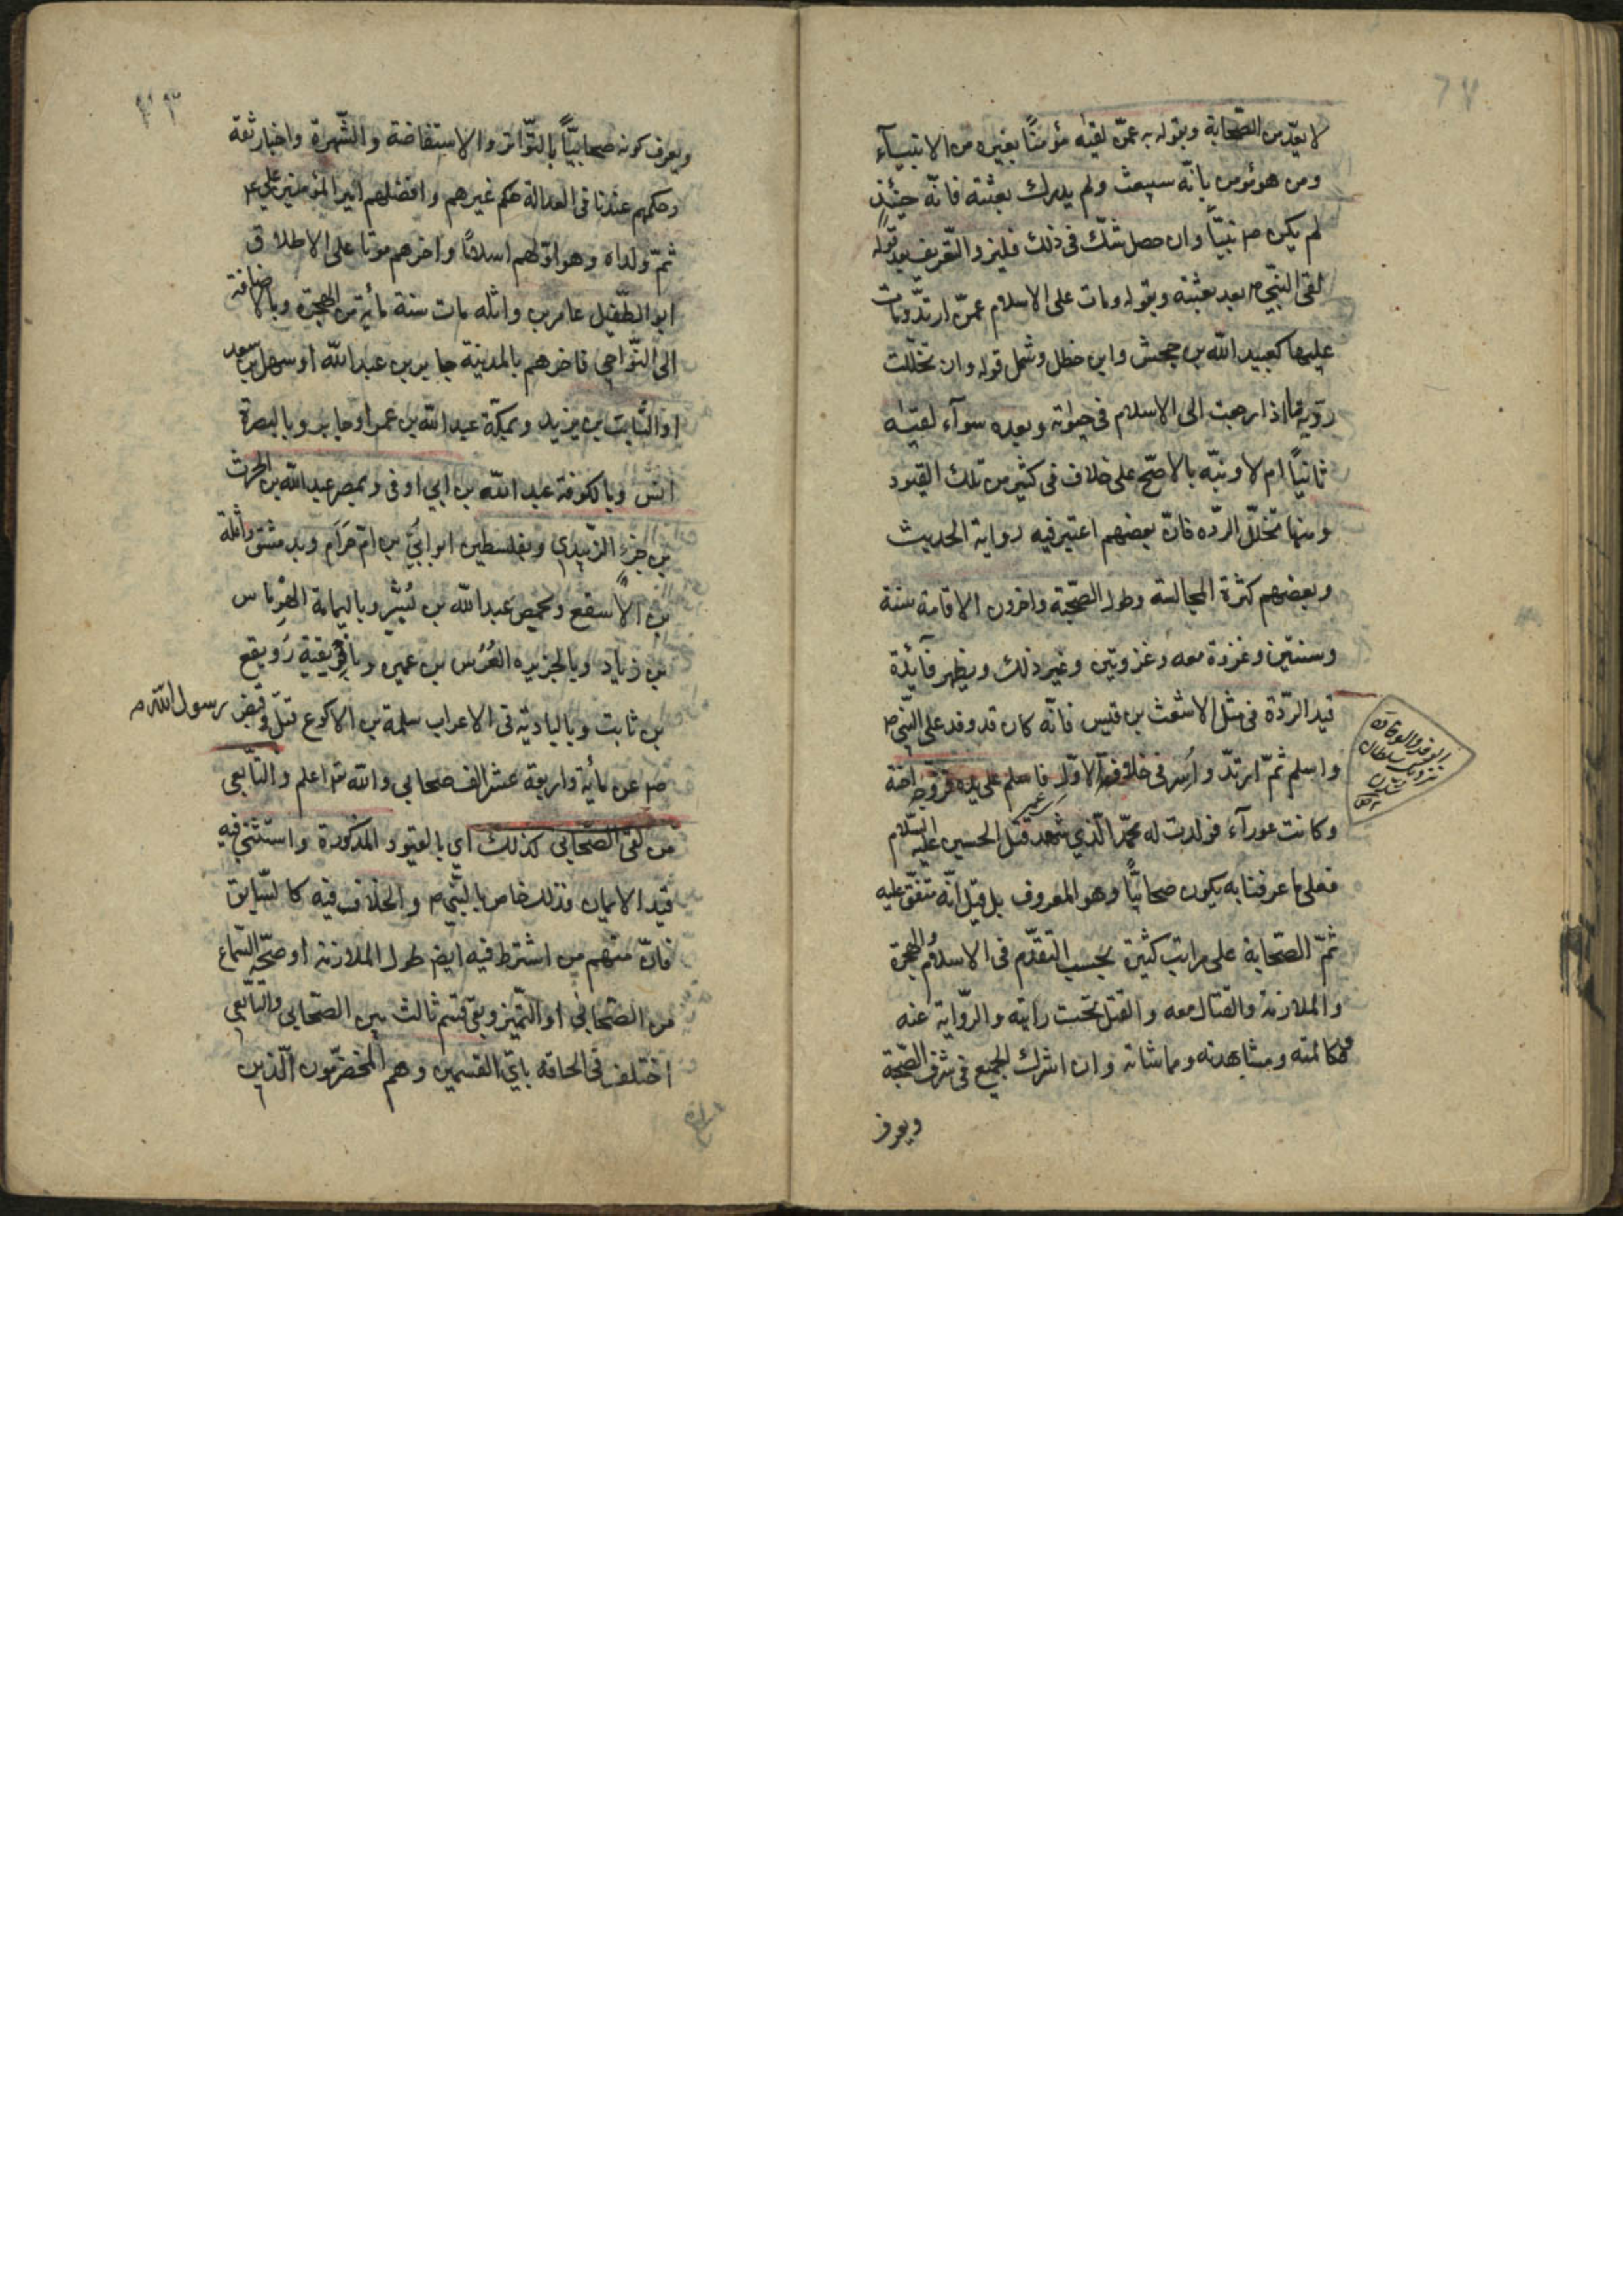 ٦٧
لا يعدّ من الصّحابة وبقوله به عمّن لقيه مؤمنًا بغيره من الانبيآء
ومن هو مؤمن بانّه سيبعث ولم يدرك بعثته فانّه حينئذٍ
لم يكن ص نبيّاً وان حصل شكّ في ذلك فليزد التّعريف بعد قوله
لقى النّبيّ ص بعد بعثته وبقوله ومات على الاسلام عمّن ارتدّ ومات
عليها كعبيد الله بن جحش وابن خطل وشمل قوله وان تخلّلت
ردّته ما اذا رجعت الى الاسلام في حيوته وبعده سوآء لقيه
ثانيًا ام لا ونبّه بالاصّح على خلاف في كثير من تلك القيود
ومنها تخلّل الردّه فانّ بعضهم اعتبر فيه رواية الحديث
وبعضهم كثرة المجالسة وطول الصّحبة واخرون الاقامة سنة
وسنتين وغزوة معه وغزوتين وغير ذلك ويظهر فآئدة
قيد الردّة في مثل الاشعث بن قيس فانّه كان قد وفد على النّبي ص
واسلم ثمّ ارتدّ واُسر في خلافة الاوّل فاسلم على يده فزوّجه اخته
وكانت عورآء فولدت له محمّد الّذي شهد قتل الحسين عليه السّلام
فعلى ما عرفنا به يكون صحابيًّا وهو المعروف بل قيل انّه متّفق عليه
ثمّ الصّحابة على مراتب كثيرة بحسب التقدّم في الاسلام والهجرة
والملازمة والقتال معه والقتل تحت رايته والرّواية عنه
ومكالمته ومشاهدته ومماشاته وان اشترك الجميع في شرف الصّحبة
ويعرف
الوفد والوفادة
نزديك سلطان
شدن
ويعرف كونه صحابيًّا بالتّواتر والاستفاضة والشّهرة واخبار ثقة
وحكمهم عندنا في العدالة حكم غيرهم وافضلهم امير المؤمنين علي ع
ثمّ ولداه وهو اوّلهم اسلامًا واخرهم موتا على الاطلاق
ابو الطّفيل عامر بن واثله مات سنة مأية من الهجرة وبالاضافة
الى النّواحي فاخرهم بالمدينة جابر بن عبد الله او سهل بن سعد
او السّايب بن يزيد وبمكّة عبد الله بن عمر او جابر وبالبصرة
انس وبالكوفة عبد الله بن ابي اوفى وبمصر عبد الله بن الحرث
بن جزء الزّبيدي وبفلسطين ابو ابيّ بن امّ حرام وبدمشق واثلة
بن الاسقع وبحمص عبد الله بن بُسْر وباليمامة الهِرْماس
بن زياد وبالجزيره العُرْس بن عميره وبافريقية رويفع
بن ثابت وبالبادية في الاعراب سلمة بن الاكوع قيل وقبض رسول الله ص
ص عن مأية واربعة عشر الف صحابي والله تعا اعلم والتّابعي
من لقى الصّحابي كذلك اي بالقيود المذكورة واستثنى فيه
قيد الايمان فذلك خاص بالنّبيّ ص والخلاف فيه كالسّابق
فانّ منهم من اشترط فيه ايضا طول الملازمة او صحّة السّماع
من الصّحابي او التّميز وبقى قسم ثالث بين الصّحابي والتّابعي
اختلف في الحاقه باىّ القسمين وهم المخضرمون الّذين